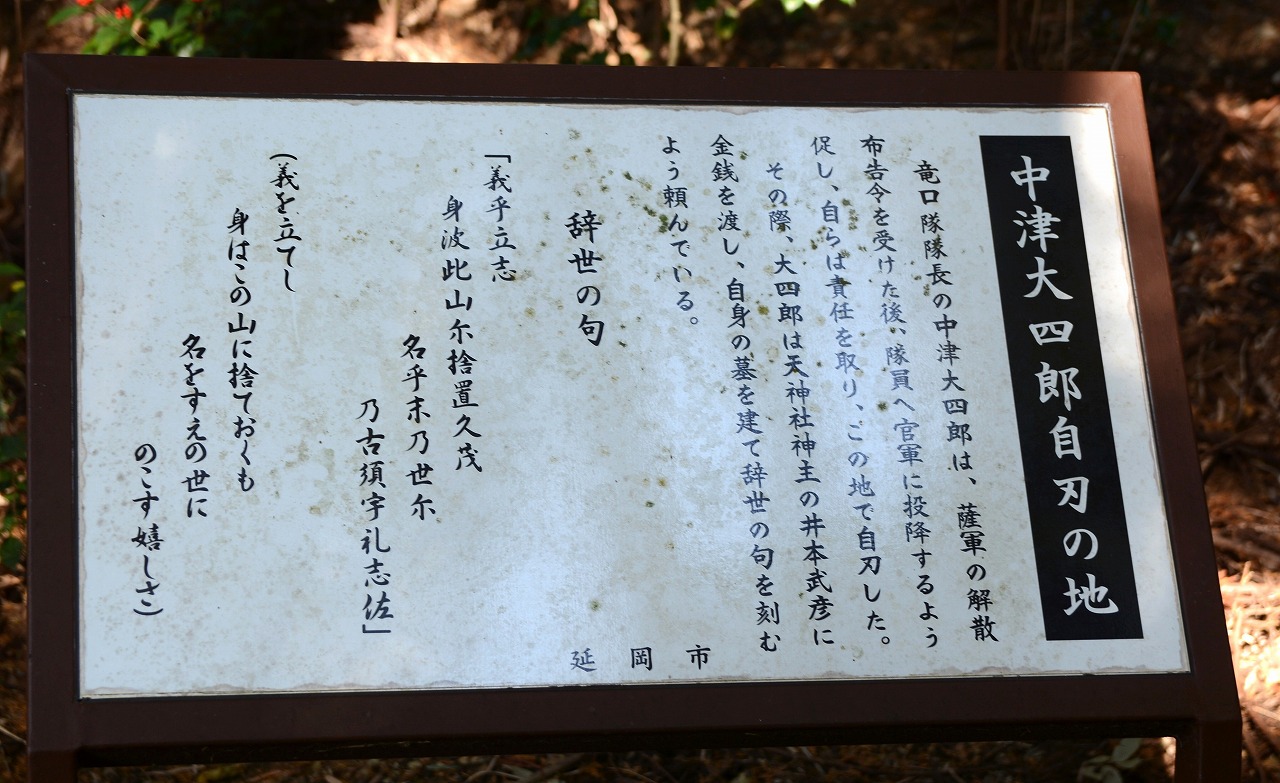 中津大四郎自刃の地
竜口隊隊長の中津大四郎は、薩軍の解散
布告令を受けた後、隊員へ官軍に投降するよう
促し、自らは責任を取り、この地で自刃した。
その際、大四郎は天神社神主の井本武彦に
金銭を渡し、自身の墓を建て辞世の句を刻む
よう頼んでいる。
辞世の句
「義乎立志
身波此山尓捨置久茂
名乎末乃世尓
乃古須宇礼志佐」
(義を立てし
身はこの山に捨ておくも
名をすえの世に
のこす嬉しさ)
延岡市